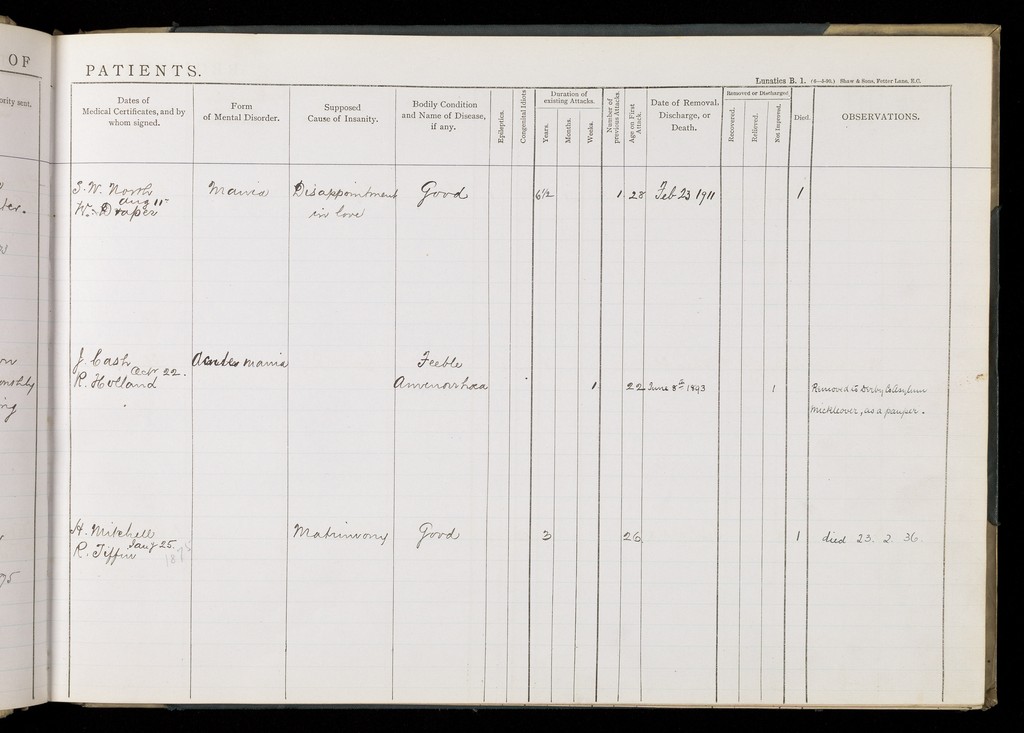 OF
ority sent.
PATIENTS.
Lunatics B. 1. (6—6-90.) Shaw & Sons, Fetter Lane, E.C.
Dates of
Medical Certificates, and by
whom signed.
Form
of Mental Disorder.
Supposed
Cause of Insanity.
Bodily Condition
and Name of Disease,
if any.
Epileptics.
Congenital Idiots
Duration of
existing Attacks.
Years.
Months.
Weeks.
Number of
previous Attacks.
Age on First
Attack.
Date of Removal,
Discharge, or
Death.
Removed or Discharged
Recovered.
Relieved.
Not Improved.
Died.
OBSERVATIONS.
S. W. North
Aug 11
W. Draper
Mania
Disappointment
in love
Good
6½
1
28
Feb 23 1911
1
J. Cash
Octr 22.
R. Holland
Acute mania
Feeble
Amenorrhœa
1
22
June 8th 1893
1
Removed to Derby Co Asylum
Mickleover, as a pauper.
H. Mitchell
Jany 25.
R. Tiffin
Matrimony
Good
3
26
1
died 23. 2. 36